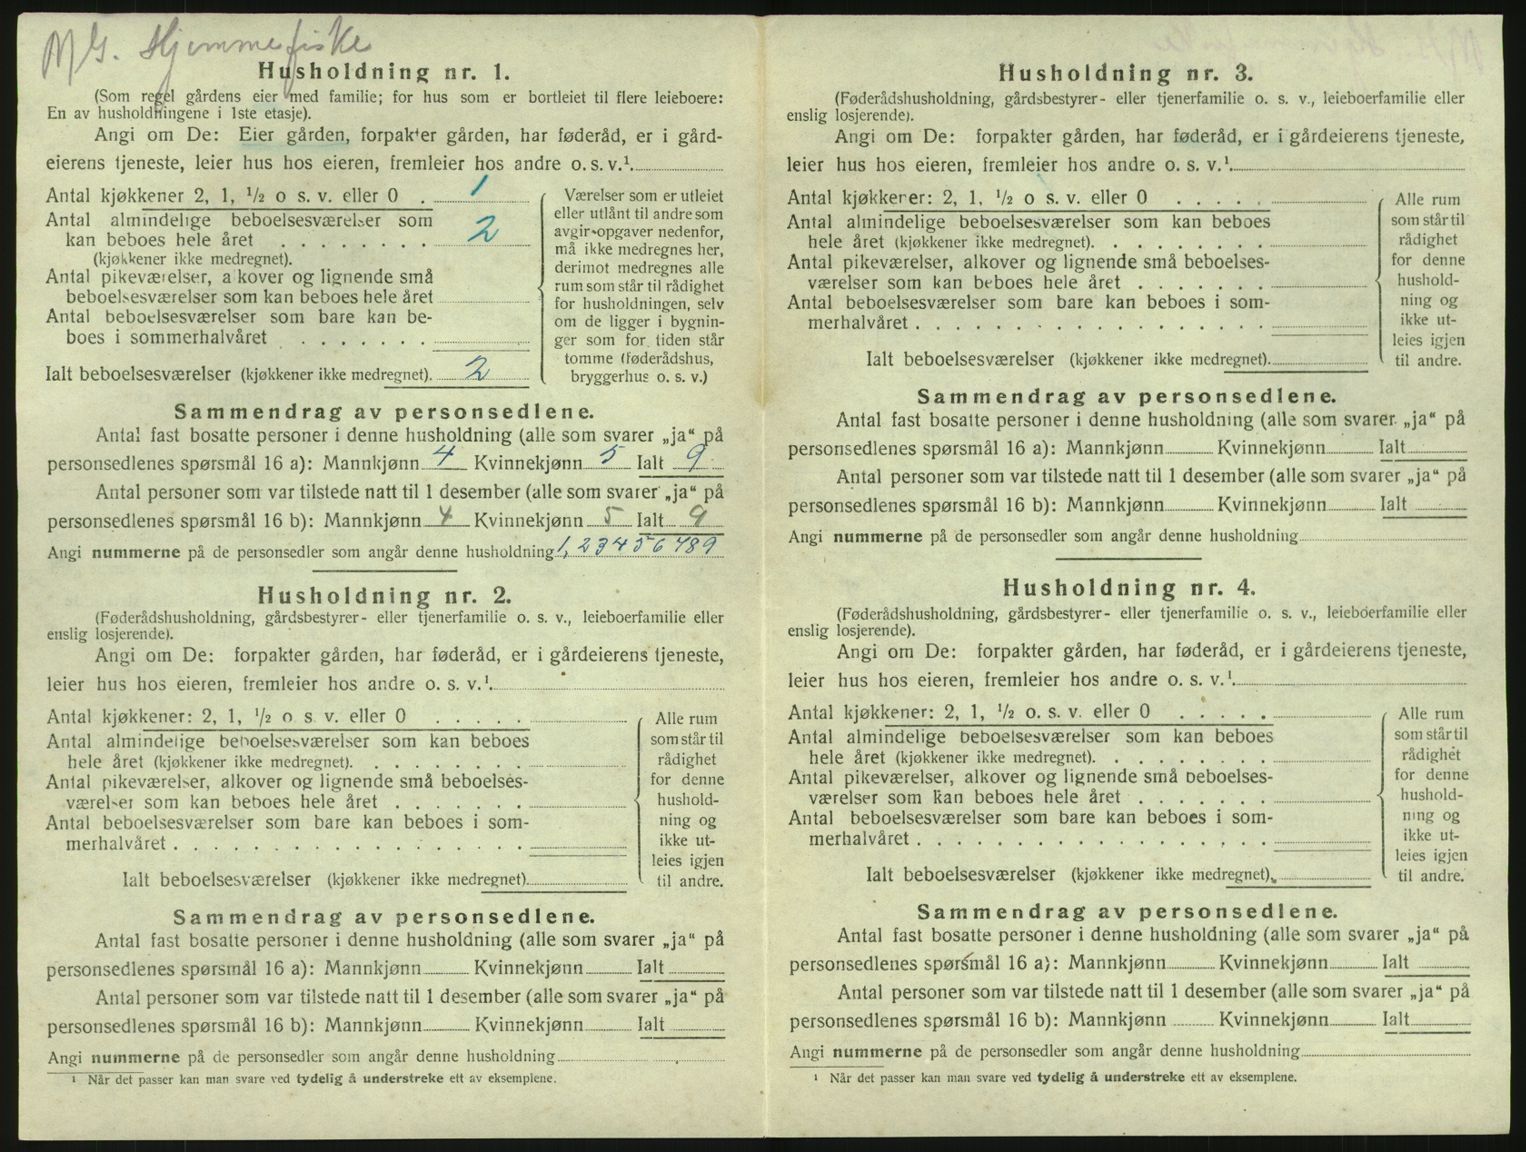 M G. Hjemmefiske
Husholdning nr. 1.
(Som regel gårdens eier med familie; for hus som er bortleiet til flere leieboere:
En av husholdningene i 1ste etasje).
Angi om De: Eier gården, forpakter gården, har føderåd, er i gård-
eierens tjeneste, leier hus hos eieren, fremleier hos andre o. s. v.¹.
Antal kjøkkener 2, 1, ½ o s. v. eller 0 . 1
Antal almindelige beboelsesværelser som
kan beboes hele året . . . . . . . . 2
(kjøkkener ikke medregnet).
Antal pikeværelser, alkover og lignende små
beboelsesværelser som kan beboes hele året
Antal beboelsesværelser som bare kan be-
boes i sommerhalvåret . . . . . . .
Ialt beboelsesværelser (kjøkkener ikke medregnet). 2
Værelser som er utleiet
eller utlånt til andre som
avgir opgaver nedenfor,
må ikke medregnes her,
derimot medregnes alle
rum som står til rådighet
for husholdningen, selv
om de ligger i bygnin-
ger som for tiden står
tomme (føderådshus,
bryggerhus o. s. v.)
Sammendrag av personsedlene.
Antal fast bosatte personer i denne husholdning (alle som svarer „ja“ på
personsedlenes spørsmål 16 a): Mannkjønn 4 Kvinnekjønn 5 Ialt 9
Antal personer som var tilstede natt til 1 desember (alle som svarer „ja“ på
personsedlenes spørsmål 16 b): Mannkjønn 4 Kvinnekjønn 5 Ialt 9
Angi nummerne på de personsedler som angår denne husholdning 1, 2 3 4 5 6 7 8 9
Husholdning nr. 2.
(Føderådshusholdning, gårdsbestyrer- eller tjenerfamilie o. s. v., leieboerfamilie eller
enslig losjerende).
Angi om De: forpakter gården, har føderåd, er i gårdeierens tjeneste,
leier hus hos eieren, fremleier hos andre o. s. v.¹.
Antal kjøkkener: 2, 1, ½ o s. v. eller 0 . . . . .
Antal almindelige beboelsesværelser som kan beboes
hele året (kjøkkener ikke medregnet). . . . . . . . .
Antal pikeværelser, alkover og lignende små beboelses-
værelser som kan beboes hele året . . . . . . .
Antal beboelsesværelser som bare kan beboes i som-
merhalvåret . . . . . . . . . . . . . . . . . .
Ialt beboelsesværelser (kjøkkener ikke medregnet).
Alle rum
som står til
rådighet
for denne
hushold-
ning og
ikke ut-
leies igjen
til andre.
Sammendrag av personsedlene.
Antal fast bosatte personer i denne husholdning (alle som svarer „ja“ på
personsedlenes spørsmål 16 a): Mannkjønn Kvinnekjønn Ialt
Antal personer som var tilstede natt til 1 desember (alle som svarer „ja“ på
personsedlenes spørsmål 16 b): Mannkjønn Kvinnekjønn Ialt
Angi nummerne på de personsedler som angår denne husholdning
¹ Når det passer kan man svare ved tydelig å understreke ett av eksemplene.
Husholdning nr. 3.
(Føderådshusholdning, gårdsbestyrer- eller tjenerfamilie o. s. v., leieboerfamilie eller
enslig losjerende).
Angi om De: forpakter gården, har føderåd, er i gårdeierens tjeneste,
leier hus hos eieren, fremleier hos andre o. s. v.¹.
Antal kjøkkener: 2, 1, ½ o s. v. eller 0 . . . . .
Antal almindelige beboelsesværelser som kan beboes
hele året (kjøkkener ikke medregnet). . . . . . . . .
Antal pikeværelser, alkover og lignende små beboelses-
værelser som kan beboes hele året . . . . . . .
Antal beboelsesværelser som bare kan beboes i som-
merhalvåret . . . . . . . . . . . . . . . . . .
Ialt beboelsesværelser (kjøkkener ikke medregnet).
Alle rum
som står til
rådighet
for denne
hushold-
ning og
ikke ut-
leies igjen
til andre.
Sammendrag av personsedlene.
Antal fast bosatte personer i denne husholdning (alle som svarer „ja“ på
personsedlenes spørsmål 16 a): Mannkjønn Kvinnekjønn Ialt
Antal personer som var tilstede natt til 1 desember (alle som svarer „ja“ på
personsedlenes spørsmål 16 b): Mannkjønn Kvinnekjønn Ialt
Angi nummerne på de personsedler som angår denne husholdning
Husholdning nr. 4.
(Føderådshusholdning, gårdsbestyrer- eller tjenerfamilie o. s. v., leieboerfamilie eller
enslig losjerende).
Angi om De: forpakter gården, har føderåd, er i gårdeierens tjeneste,
leier hus hos eieren, fremleier hos andre o. s. v.¹.
Antal kjøkkener: 2, 1, ½ o. s. v. eller 0 . . . . .
Antal almindelige beboelsesværelser som kan beboes
hele året (kjøkkener ikke medregnet). . . . . . . . .
Antal pikeværelser, alkover og lignende små beboelses-
værelser som kan beboes hele året . . . . . . .
Antal beboelsesværelser som bare kan beboes i som-
merhalvåret . . . . . . . . . . . . . . . . . .
Ialt beboelsesværelser (kjøkkener ikke medregnet).
Alle rum
som står til
rådighet
for denne
hushold-
ning og
ikke ut-
leies igjen
til andre.
Sammendrag av personsedlene.
Antal fast bosatte personer i denne husholdning (alle som svarer „ja“ på
personsedlenes spørsmål 16 a): Mannkjønn Kvinnekjønn Ialt
Antal personer som var tilstede natt til 1 desember (alle som svarer „ja“ på
personsedlenes spørsmål 16 b): Mannkjønn Kvinnekjønn Ialt
Angi nummerne på de personsedler som angår denne husholdning
¹ Når det passer kan man svare ved tydelig å understreke ett av eksemplene.